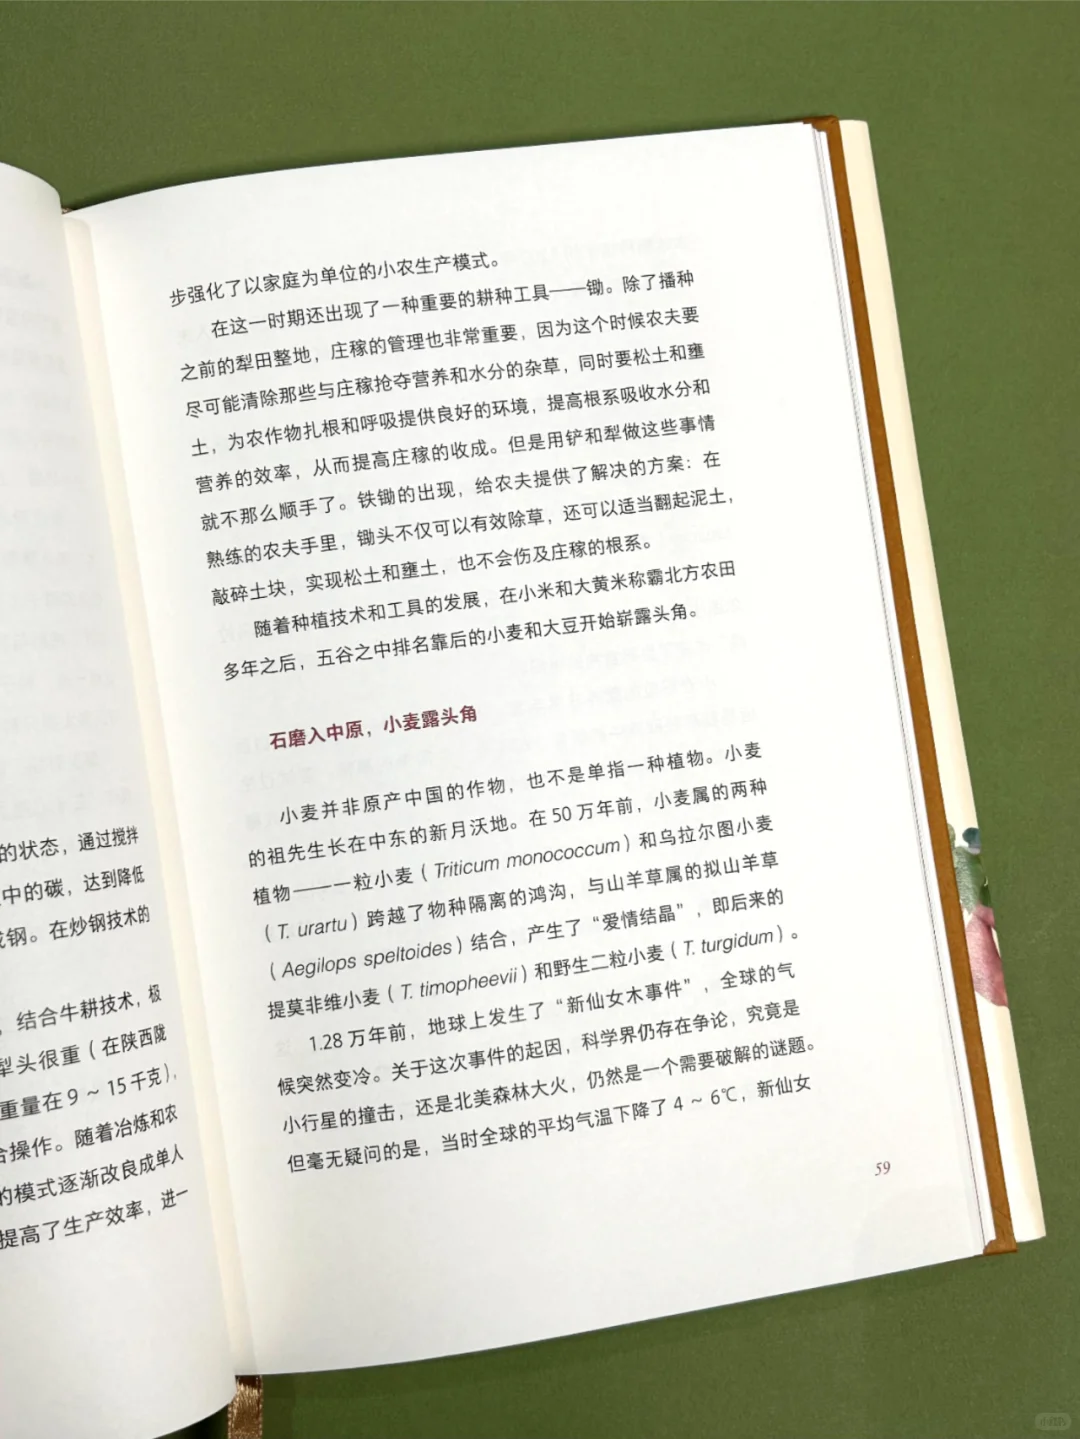 的状态，通过搅拌
中的碳，达到降低
成钢。在炒钢技术的
，结合牛耕技术，极
犁头很重（在陕西陇
重量在9～15千克），
合操作。随着冶炼和农
的模式逐渐改良成单人
提高了生产效率，进一
步强化了以家庭为单位的小农生产模式。
在这一时期还出现了一种重要的耕种工具——锄。除了播种
之前的犁田整地，庄稼的管理也非常重要，因为这个时候农夫要
尽可能清除那些与庄稼抢夺营养和水分的杂草，同时要松土和壅
土，为农作物扎根和呼吸提供良好的环境，提高根系吸收水分和
营养的效率，从而提高庄稼的收成。但是用铲和犁做这些事情
就不那么顺手了。铁锄的出现，给农夫提供了解决的方案：在
熟练的农夫手里，锄头不仅可以有效除草，还可以适当翻起泥土，
敲碎土块，实现松土和壅土，也不会伤及庄稼的根系。
随着种植技术和工具的发展，在小米和大黄米称霸北方农田
多年之后，五谷之中排名靠后的小麦和大豆开始崭露头角。
石磨入中原，小麦露头角
小麦并非原产中国的作物，也不是单指一种植物。小麦
的祖先生长在中东的新月沃地。在50万年前，小麦属的两种
植物——一粒小麦（Triticum monococcum）和乌拉尔图小麦
（T. urartu）跨越了物种隔离的鸿沟，与山羊草属的拟山羊草
（Aegilops speltoides）结合，产生了“爱情结晶”，即后来的
提莫非维小麦（T. timopheevii）和野生二粒小麦（T. turgidum）。
1.28万年前，地球上发生了“新仙女木事件”，全球的气
候突然变冷。关于这次事件的起因，科学界仍存在争论，究竟是
小行星的撞击，还是北美森林大火，仍然是一个需要破解的谜题。
但毫无疑问的是，当时全球的平均气温下降了4～6℃，新仙女
59